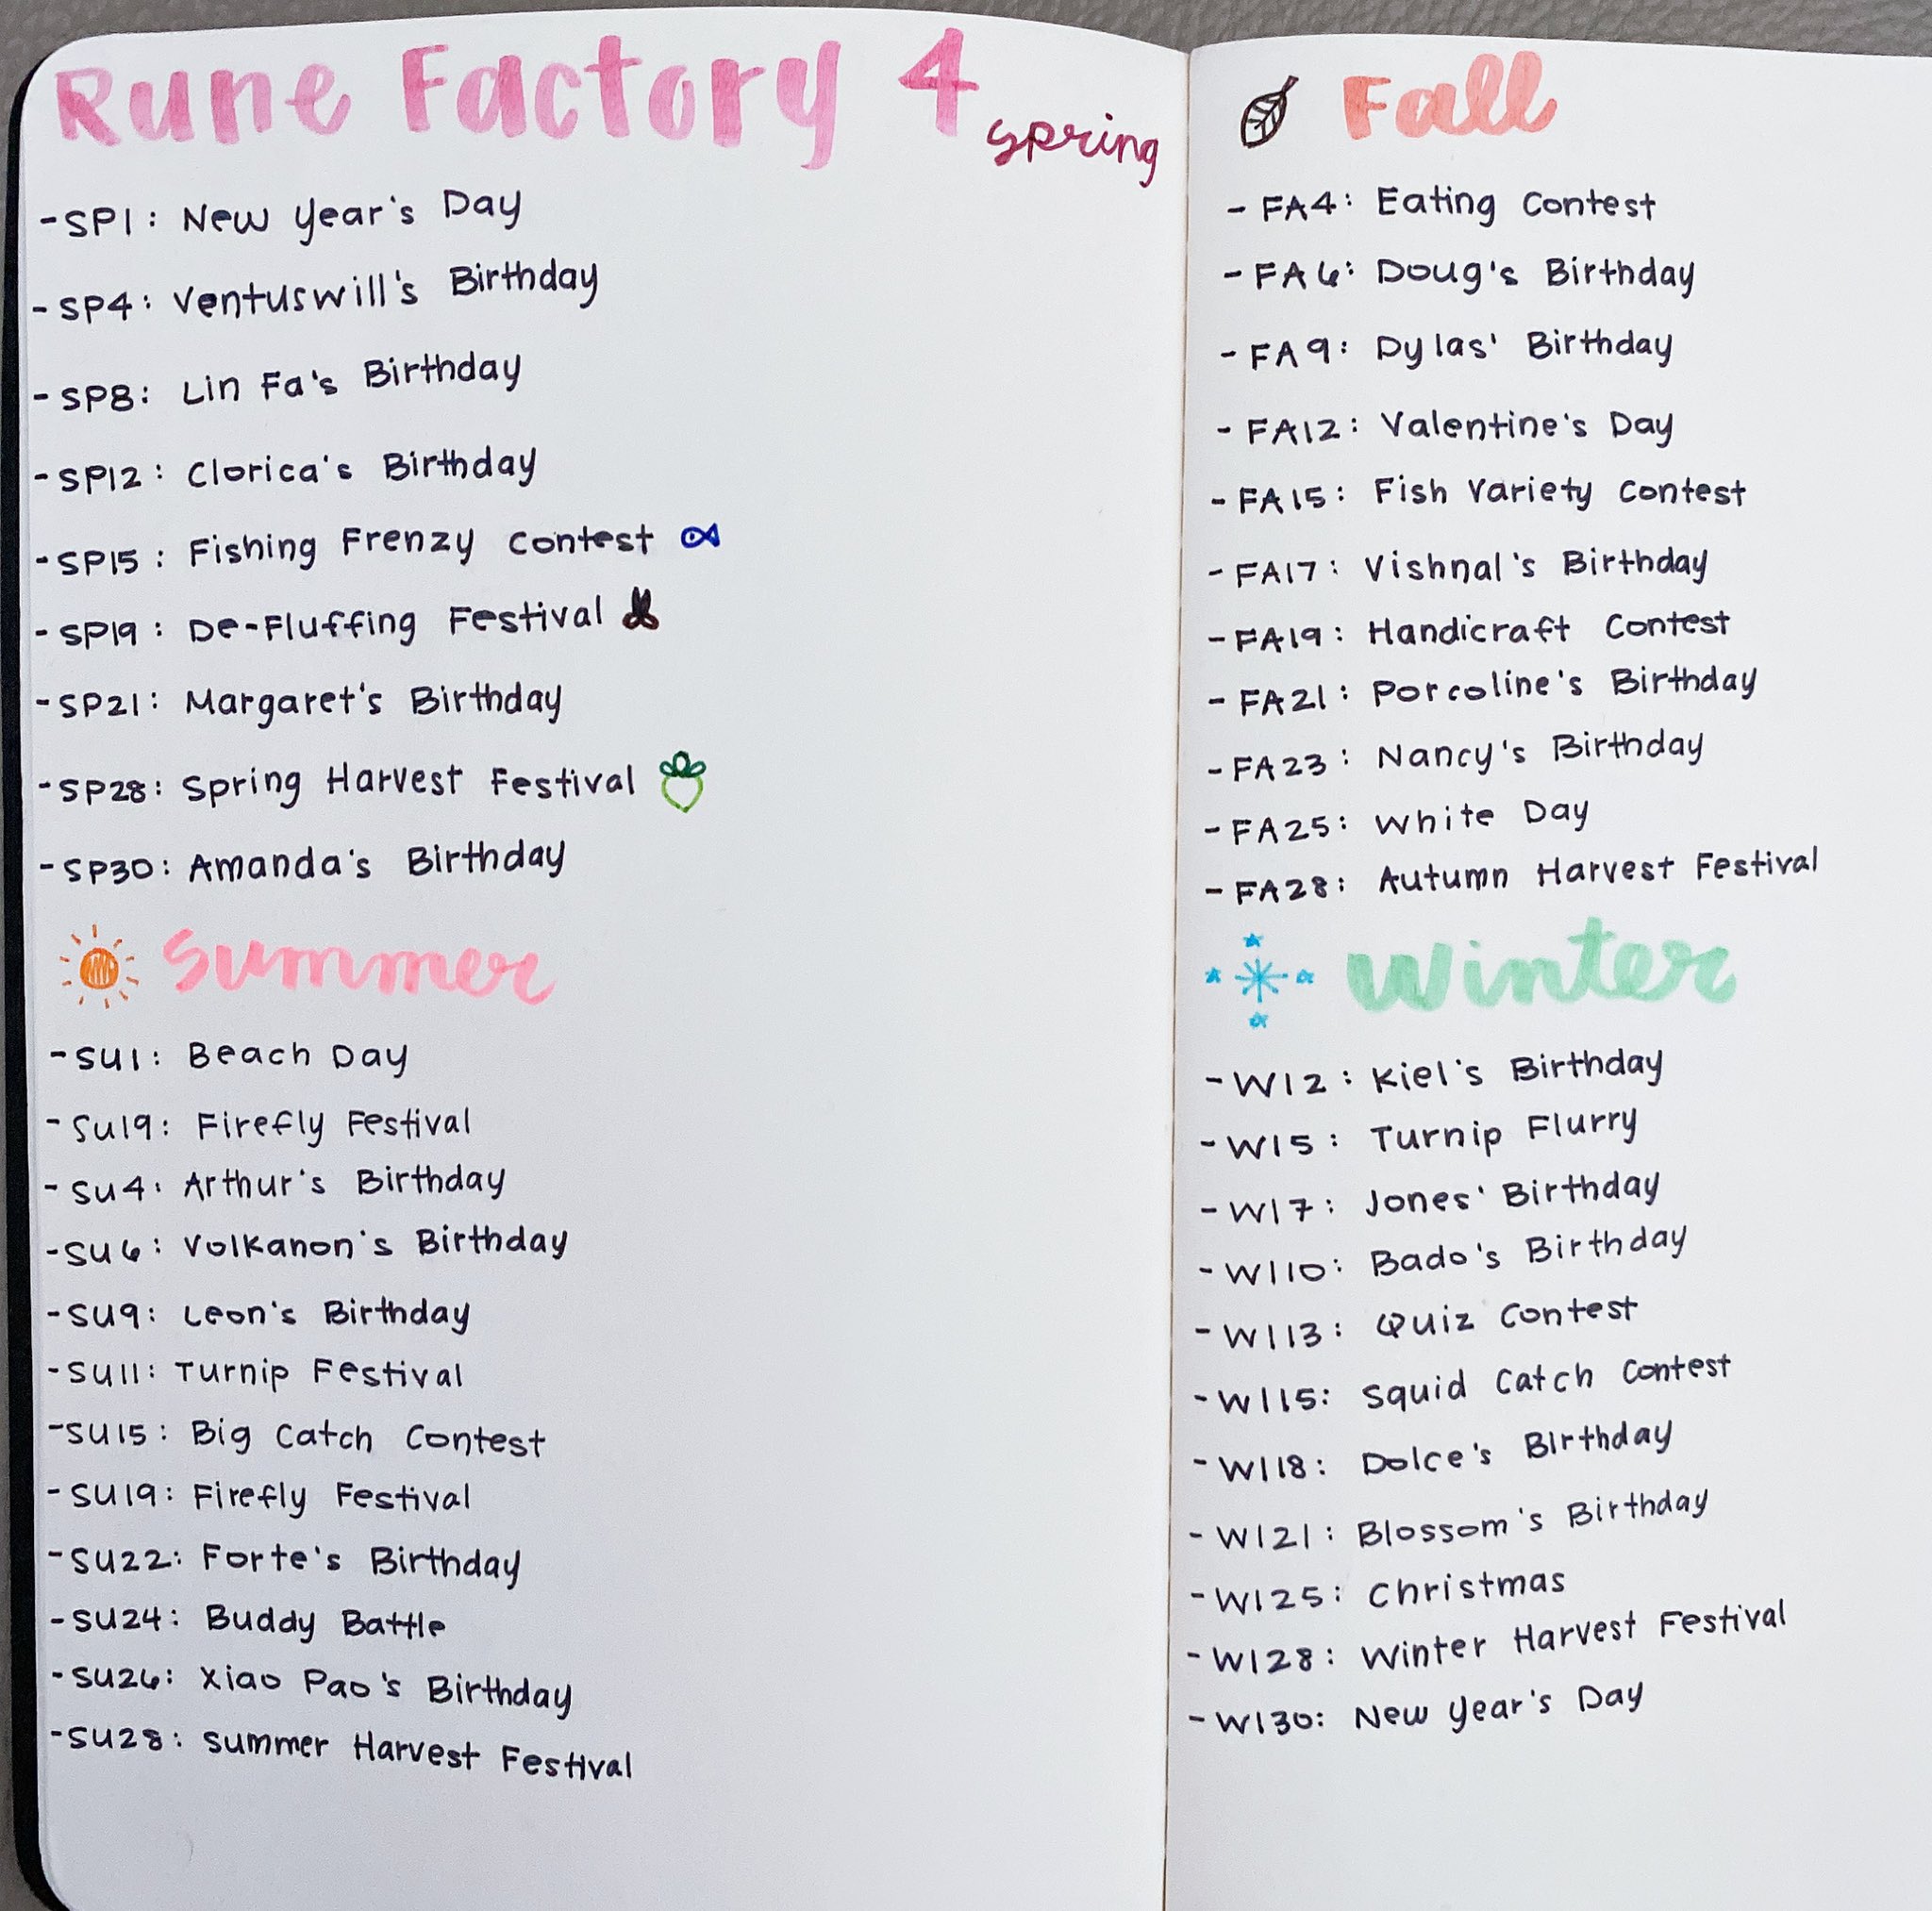 Rune Factory 4
Spring
-SP1: New Year's Day
-SP4: Ventuswill's Birthday
-SP8: Lin Fa's Birthday
-SP12: Clorica's Birthday
-SP15: Fishing Frenzy Contest
-SP19: De-Fluffing Festival
-SP21: Margaret's Birthday
-SP28: Spring Harvest Festival
-SP30: Amanda's Birthday
Summer
-SU1: Beach Day
-SU19: Firefly Festival
-SU4: Arthur's Birthday
-SU6: Volkanon's Birthday
-SU9: Leon's Birthday
-SU11: Turnip Festival
-SU15: Big Catch Contest
-SU19: Firefly Festival
-SU22: Forte's Birthday
-SU24: Buddy Battle
-SU26: Xiao Pao's Birthday
-SU28: Summer Harvest Festival
Fall
-FA4: Eating Contest
-FA6: Doug's Birthday
-FA9: Dylas' Birthday
-FA12: Valentine's Day
-FA15: Fish Variety Contest
-FA17: Vishnal's Birthday
-FA19: Handicraft Contest
-FA21: Porcoline's Birthday
-FA23: Nancy's Birthday
-FA25: White Day
-FA28: Autumn Harvest Festival
Winter
-WI2: Kiel's Birthday
-WI5: Turnip Flurry
-WI7: Jones' Birthday
-WI10: Bado's Birthday
-WI13: Quiz Contest
-WI15: Squid Catch Contest
-WI18: Dolce's Birthday
-WI21: Blossom's Birthday
-WI25: Christmas
-WI28: Winter Harvest Festival
-WI30: New Year's Day